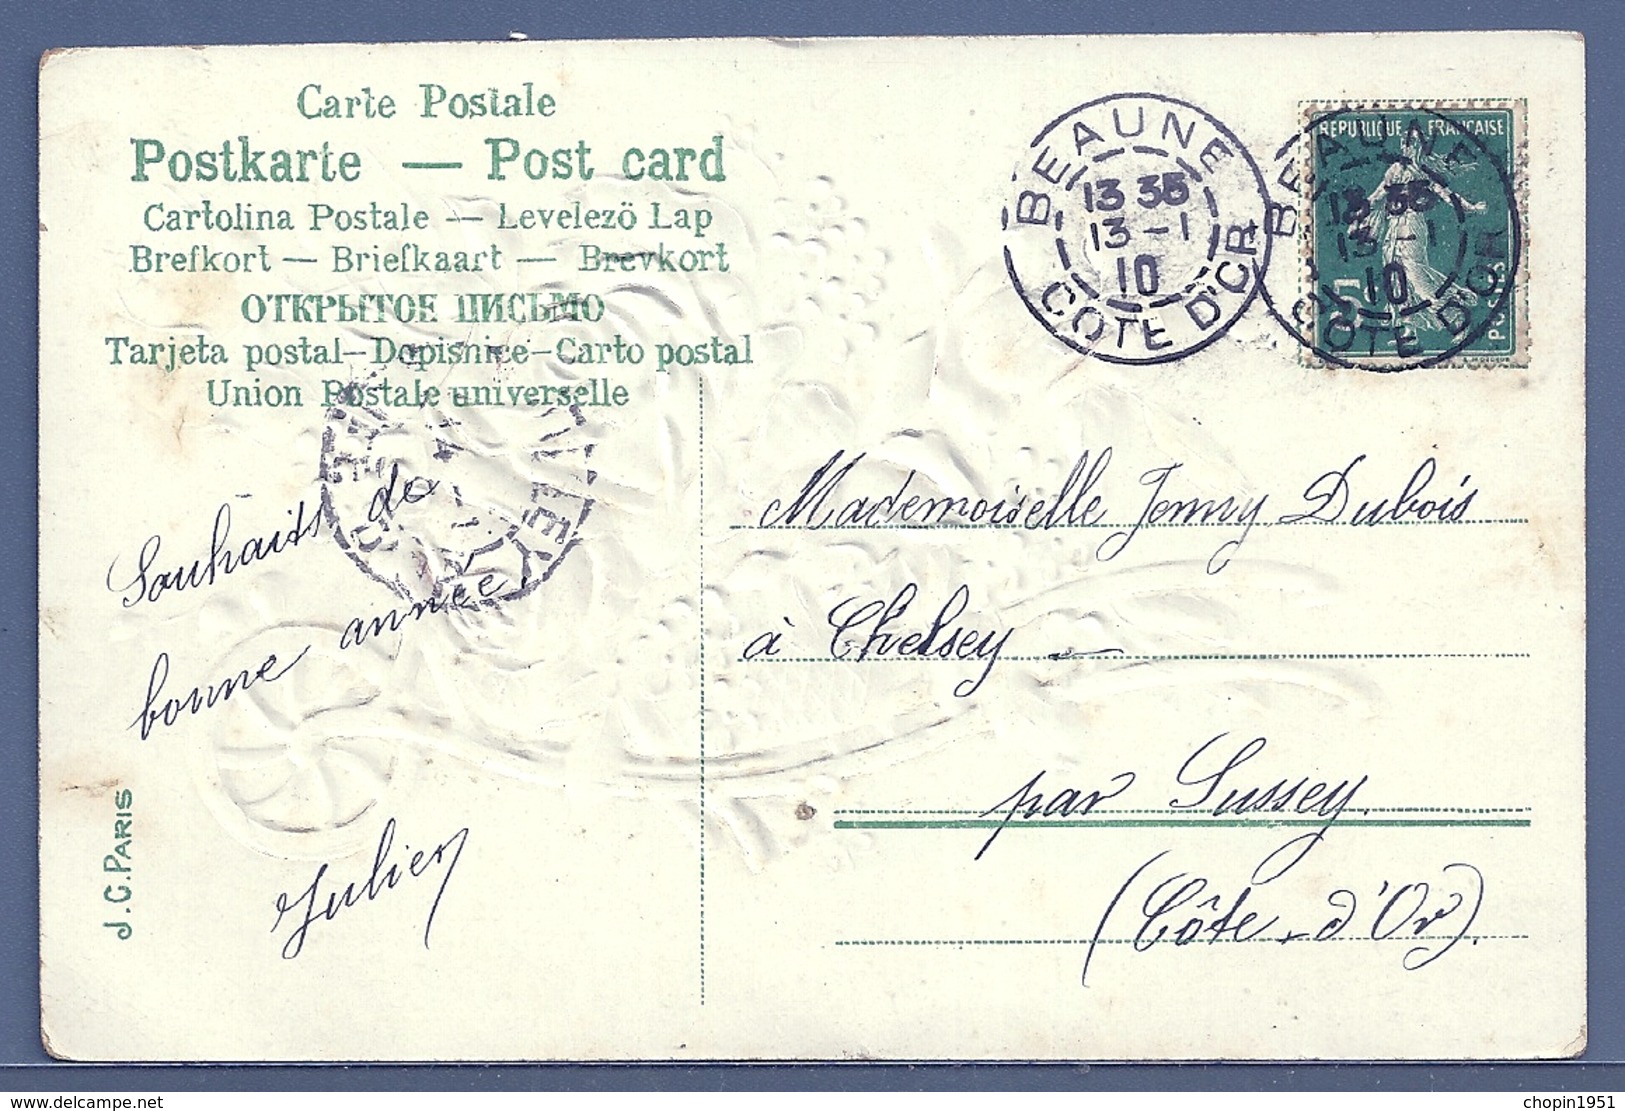 Carte Postale
Postkarte — Post card
Cartolina Postale — Levelezö Lap
Brefkort — Briefkaart — Brevkort
ОТКРЫТОЕ ПИСЬМО
Tarjeta postal-Dopisnice-Carto postal
Union Postale universelle
BEAUNE
13 35
13 -1
10
COTE D'OR
REPUBLIQUE FRANÇAISE
POSTES
5
BEAUNE
13 35
13 -1
10
COTE D'OR
Souhaits de
bonne année
Julien
Mademoiselle Jenny Dubois
à Chelsey —
par Sussey.
(Côte-d'Or).
J.C. PARIS
delcampe.net
chopin1951